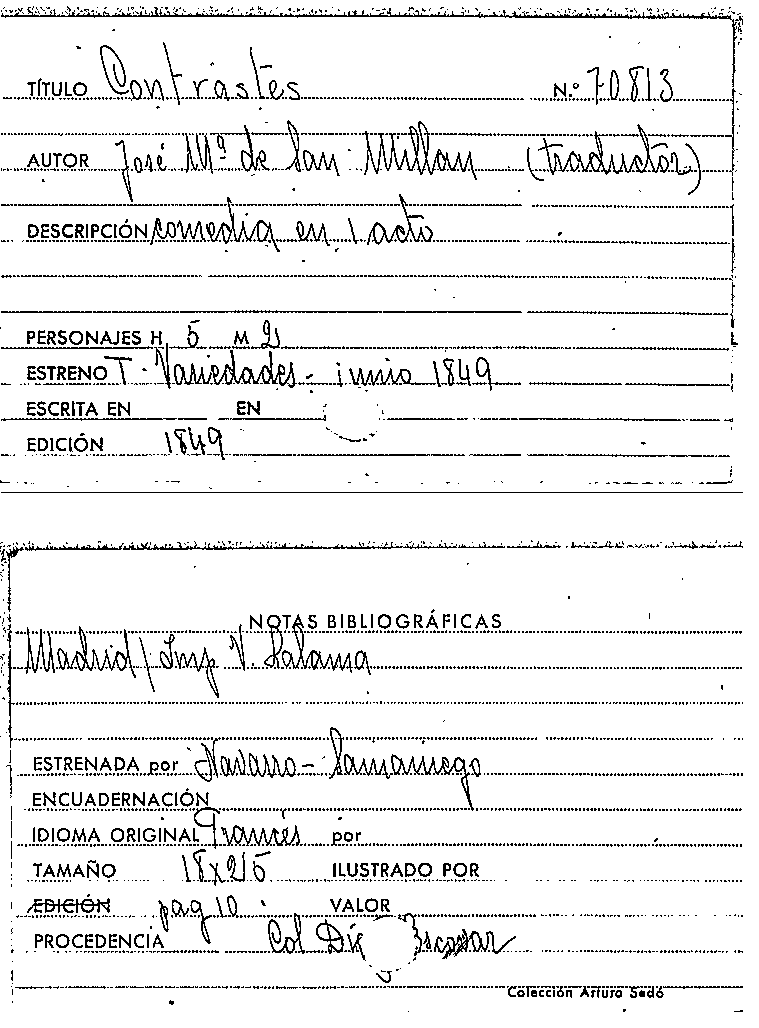 TÍTULO Contrastes N.º 70813
AUTOR José Mª de San Millan (traductor)
DESCRIPCIÓN comedia en 1 acto
PERSONAJES H 5 M 2
ESTRENO T. Variedades - junio 1849
ESCRITA EN EN
EDICIÓN 1849
NOTAS BIBLIOGRÁFICAS
Madrid / Imp V. Lalama
ESTRENADA por Navarro - Samaniego
ENCUADERNACIÓN
IDIOMA ORIGINAL Francés por
TAMAÑO 18x25 ILUSTRADO POR
EDICIÓN pag 10. VALOR
PROCEDENCIA Col Escobar
Colección Arturo Sedó